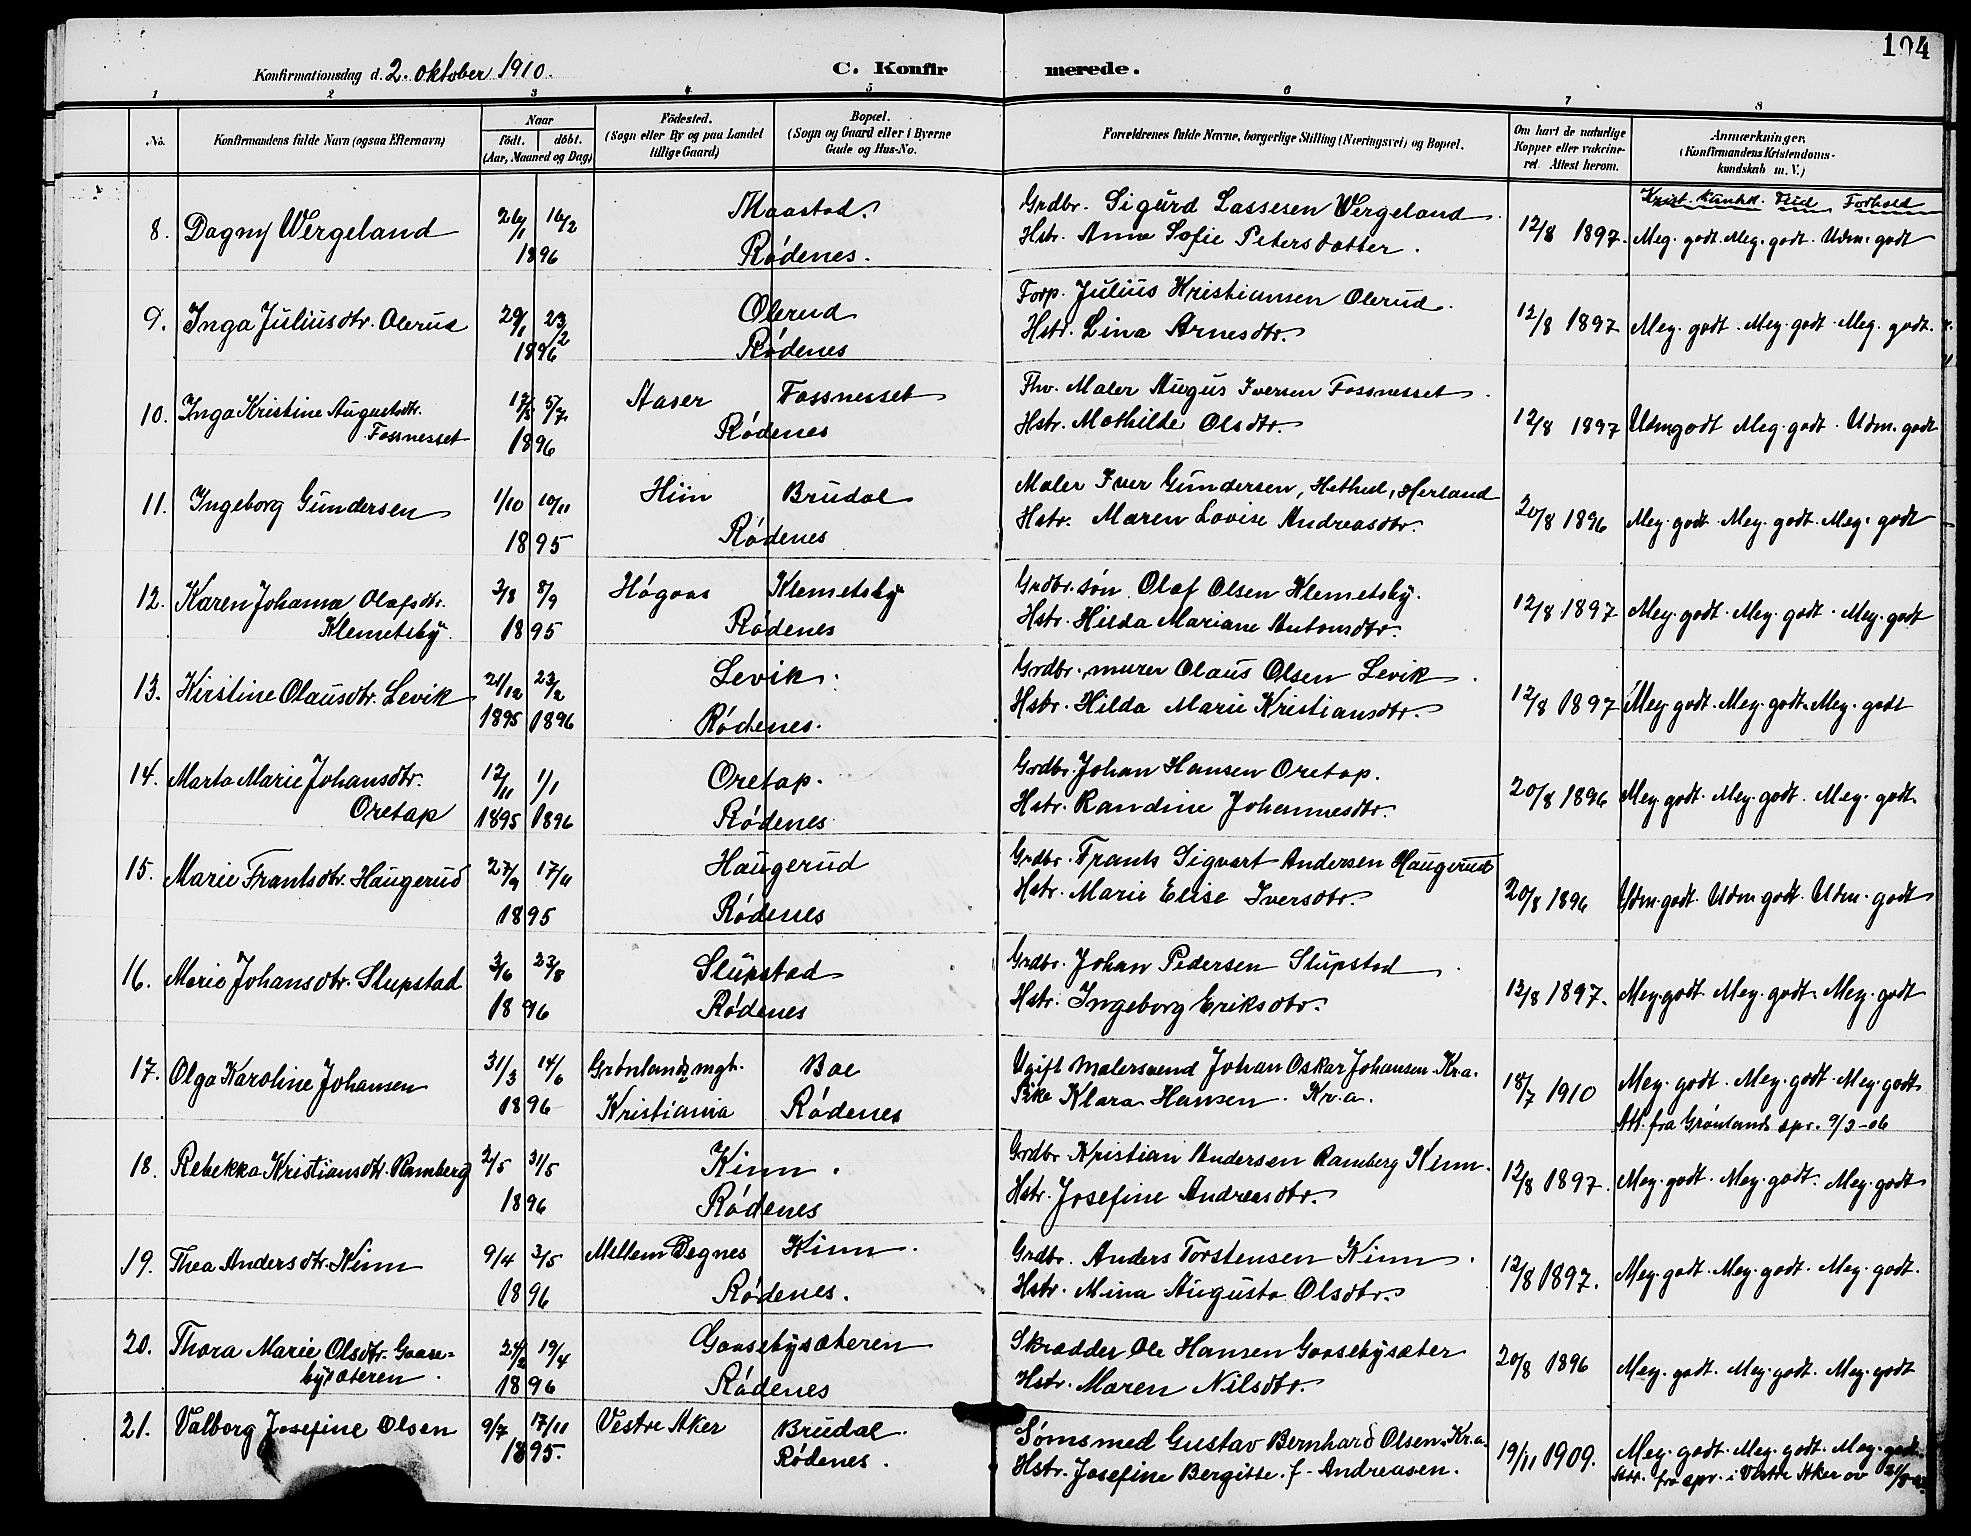 104
Konfirmationsdag d. 2. oktober 1910.
C. Konfirmerede.
1 2 3 4 5 6 7 8
No.
Konfirmandens fulde Navn (ogsaa Efternavn)
Naar
födt. döbt.
(Aar, Maaned og Dag)
Födested.
(Sogn eller By og paa Landet
tillige Gaard)
Bopæl.
(Sogn og Gaard eller i Byerne
Gade og Hus-No.
Forældrenes fulde Navne, borgerlige Stilling (Næringsvei) og Bopæl.
Om havt de naturlige
Kopper eller vakcine-
ret. Attest herom.
Anmærkninger,
(Konfirmandens Kristendoms-
kundskab m. V.)
Krist. kundsk. Flid Forhold
8. Dagny Wergeland 26/1 16/2 1896 Maastad. Rødenes.
Grdbr. Sigurd Lassesen Wergeland
Hstr. Anna Sofie Petersdatter.
12/8 1897. Meg. godt. Meg. godt. Udm. godt
9. Inga Juliusdtr. Olerud 29/1 23/2 1896 Olerud Rødenes
Forp. Julius Kristiansen Olerud.
Hstr. Lina Arnesdtr.
12/8 1897 Meg. godt. Meg. godt. Meg. godt.
10. Inga Kristine Augustsdtr.
Fossnesset 5/7 1896 Aaser Fossnesset Rødenes
Fhv. Maler Augus Iversen Fossnesset.
Hstr. Mathilde Olsdtr.
12/8 1897 Udm godt Meg. godt. Udm. godt
11. Ingeborg Gundersen 1/10 10/11 1895 Hiin Brudal Rødenes
Maler Iver Gundersen, Herland
Hstr. Maren Lovise Andreasdtr.
20/8 1896 Meg. godt. Meg. godt. Meg. godt
12. Karen Johanna Olafsdtr.
Klemetsby. 3/8 8/9 1895 Høgaas Klemetsby Rødenes
Grdbr. søn Olaf Olsen Klemetsby.
Hstr. Hilda Mariane Antonsdtr.
12/8 1897 Meg. godt. Meg. godt. Meg. godt
13. Kirstine Olausdtr. Levik 21/12 1895 23/2 1896 Levik. Rødenes.
Grdbr., murer Olaus Olsen Levik.
Hstr. Hilda Marie Kristiansdtr.
12/8 1897 Meg. godt. Meg. godt. Meg. godt
14. Marta Marie Johansdtr.
Oretap 12/11 1895 1/1 1896 Oretap. Rødenes
Grdbr. Johan Hansen Oretap.
Hstr. Randine Johannesdtr.
20/8 1896 Meg. godt. Meg. godt. Meg. godt
15. Marie Frantsdtr. Haugerud 27/9 17/11 1895 Haugerud Rødenes
Grdbr. Frants Sigvart Andersen Haugerud
Hstr. Marie Elise Iversdtr.
20/8 1896 Udm. godt. Udm. godt. Udm. godt
16. Marie Johansdtr. Slupstad 3/6 23/8 1896 Slupstad Rødenes
Grdbr. Johan Pedersen Slupstad.
Hstr. Ingeborg Eriksdtr.
12/8 1897. Meg. godt. Meg. godt. Meg. godt
17. Olga Karoline Johansen 31/3 14/6 1896 Grønlands mgh. Kristiania Boe Rødenes
Ugift Malersvend Johan Oskar Johansen. Kr.a.
Pike Klara Hansen. Kr.a.
18/7 1910 Meg. godt. Meg. godt. Meg. godt.
Att. fra Grønlands spr. 9/3-06
18. Rebekka Kristiansdtr. Ramberg 2/5 31/5 1896 Kinn. Rødenes
Grdbr. Kristian Andersen Ramberg Kinn.
Hstr. Josefine Andreasdtr.
12/8 1897. Meg. godt. Meg. godt. Meg. godt
19. Thea Andersdtr. Kinn 9/4 3/5 1896 Mellem Degnes Kinn. Rødenes.
Grdbr. Anders Torstensen Kinn.
Hstr. Mina Augusta Olsdtr.
12/8 1897. Meg. godt. Meg. godt. Meg. godt.
20. Thora Marie Olsdtr. Gaase-
bysæteren. 19/4 1896 Gaasebysæteren Rødenes
Skrædder Ole Hansen Gaasebysæter
Hstr. Maren Nilsdtr.
20/8 1896 Meg. godt. Meg. godt. Meg. godt
21. Valborg Josefine Olsen 9/7 17/11 1895. Vestre Aker Brudal. Rødenes.
Sømsmed Gustav Bernhard Olsen. Kr.a.
Hstr. Josefine Bergitte. f. Andreasen.
19/11 1909. Meg. godt. Meg. godt. Meg. godt.
Att. fra spr. i Vestre Aker av